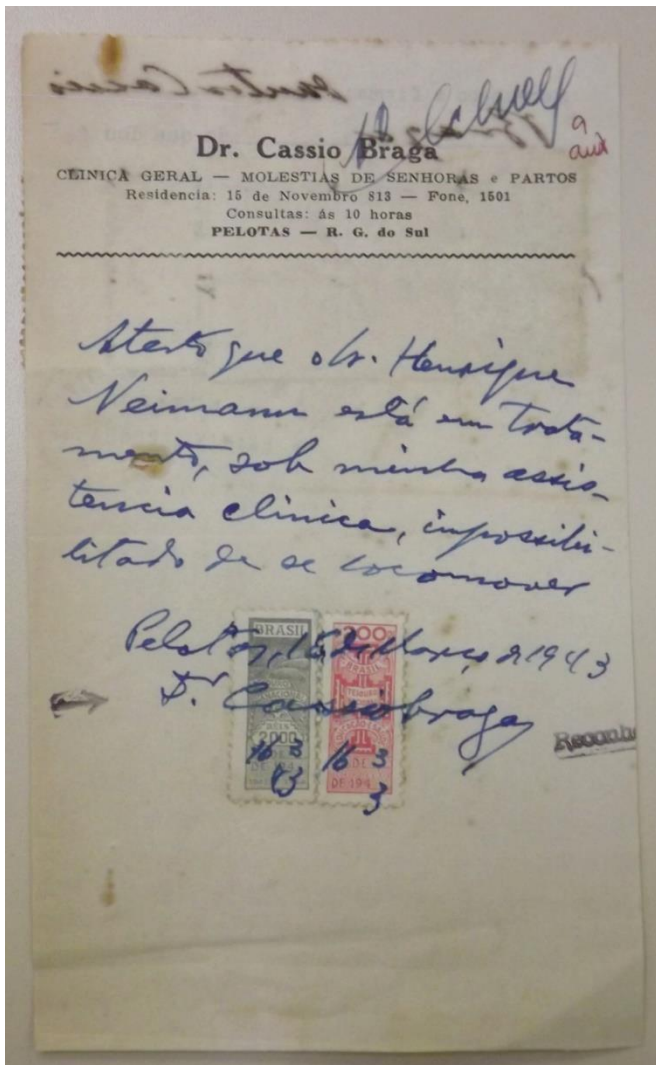 a
aux
Dr. Cassio Braga
CLINICA GERAL — MOLESTIAS DE SENHORAS e PARTOS
Residencia: 15 de Novembro 813 — Fone, 1501
Consultas: ás 10 horas
PELOTAS — R. G. do Sul
Atesto que o Sr. Henrique
Neimann está em trata-
mento, sob minha assis-
tencia clinica, impossibi-
litado de se locomover
Pelotas, 15 de Março de 1943
Dr. Cassio Braga
BRASIL
2000
DE 194
16 3
43
200
BRASIL
TESOURO
DE
DE 194
16 3
3
Reconhe